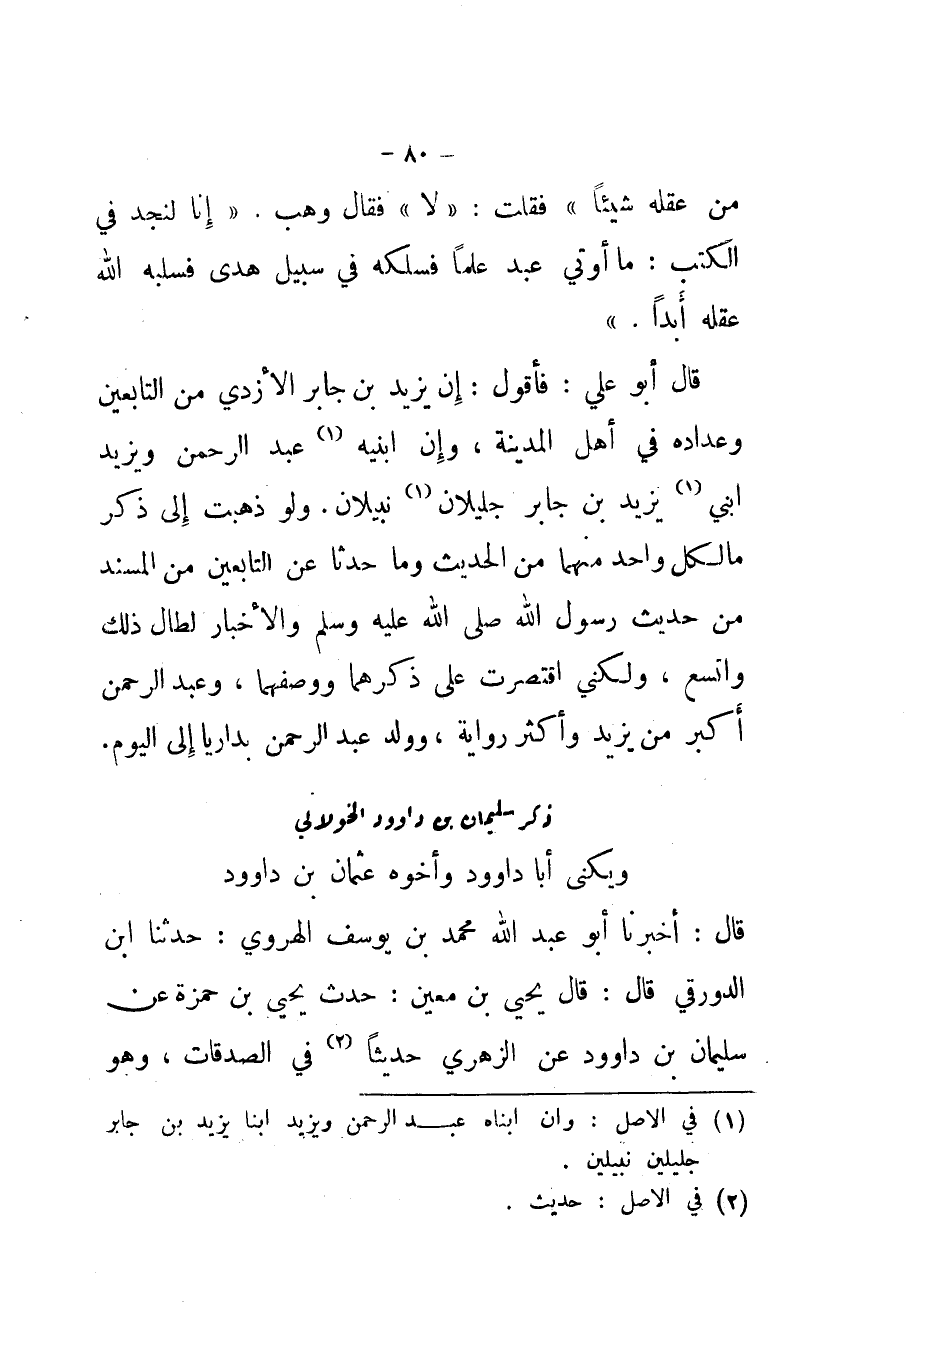 – ٨٠ –
من عقله شيئاً » فقلت : « لا » فقال وهب . « إنا لنجد في
الكتب : ما أوتي عبد علماً فسلكه في سبيل هدى فسلبه الله
عقله أبداً . »
قال أبو علي : فأقول : إن يزيد بن جابر الأزدي من التابعين
وعداده في أهل المدينة ، وإن ابنيه (١) عبد الرحمن ويزيد
ابني (١) يزيد بن جابر جليلان (١) نبيلان . ولو ذهبت إلى ذكر
مالكل واحد منهما من الحديث وما حدثا عن التابعين من المسند
من حديث رسول الله صلى الله عليه وسلم والأخبار لطال ذلك
واتسع ، ولكني اقتصرت على ذكرهما ووصفهما ، وعبد الرحمن
أكبر من يزيد وأكثر رواية ، وولد عبد الرحمن بداريا إلى اليوم .
ذكر سليمان بن داوود الخولاني
ويكنى أبا داوود وأخوه عثمان بن داوود
قال : أخبرنا أبو عبد الله محمد بن يوسف الهروي : حدثنا ابن
الدورقي قال : قال يحيى بن معين : حدث يحيى بن حمزة عن
سليمان بن داوود عن الزهري حديثاً (٢) في الصدقات ، وهو
(١) في الاصل : وان ابناه عبد الرحمن ويزيد ابنا يزيد بن جابر
جليلين نبيلين .
(٢) في الاصل : حديث .